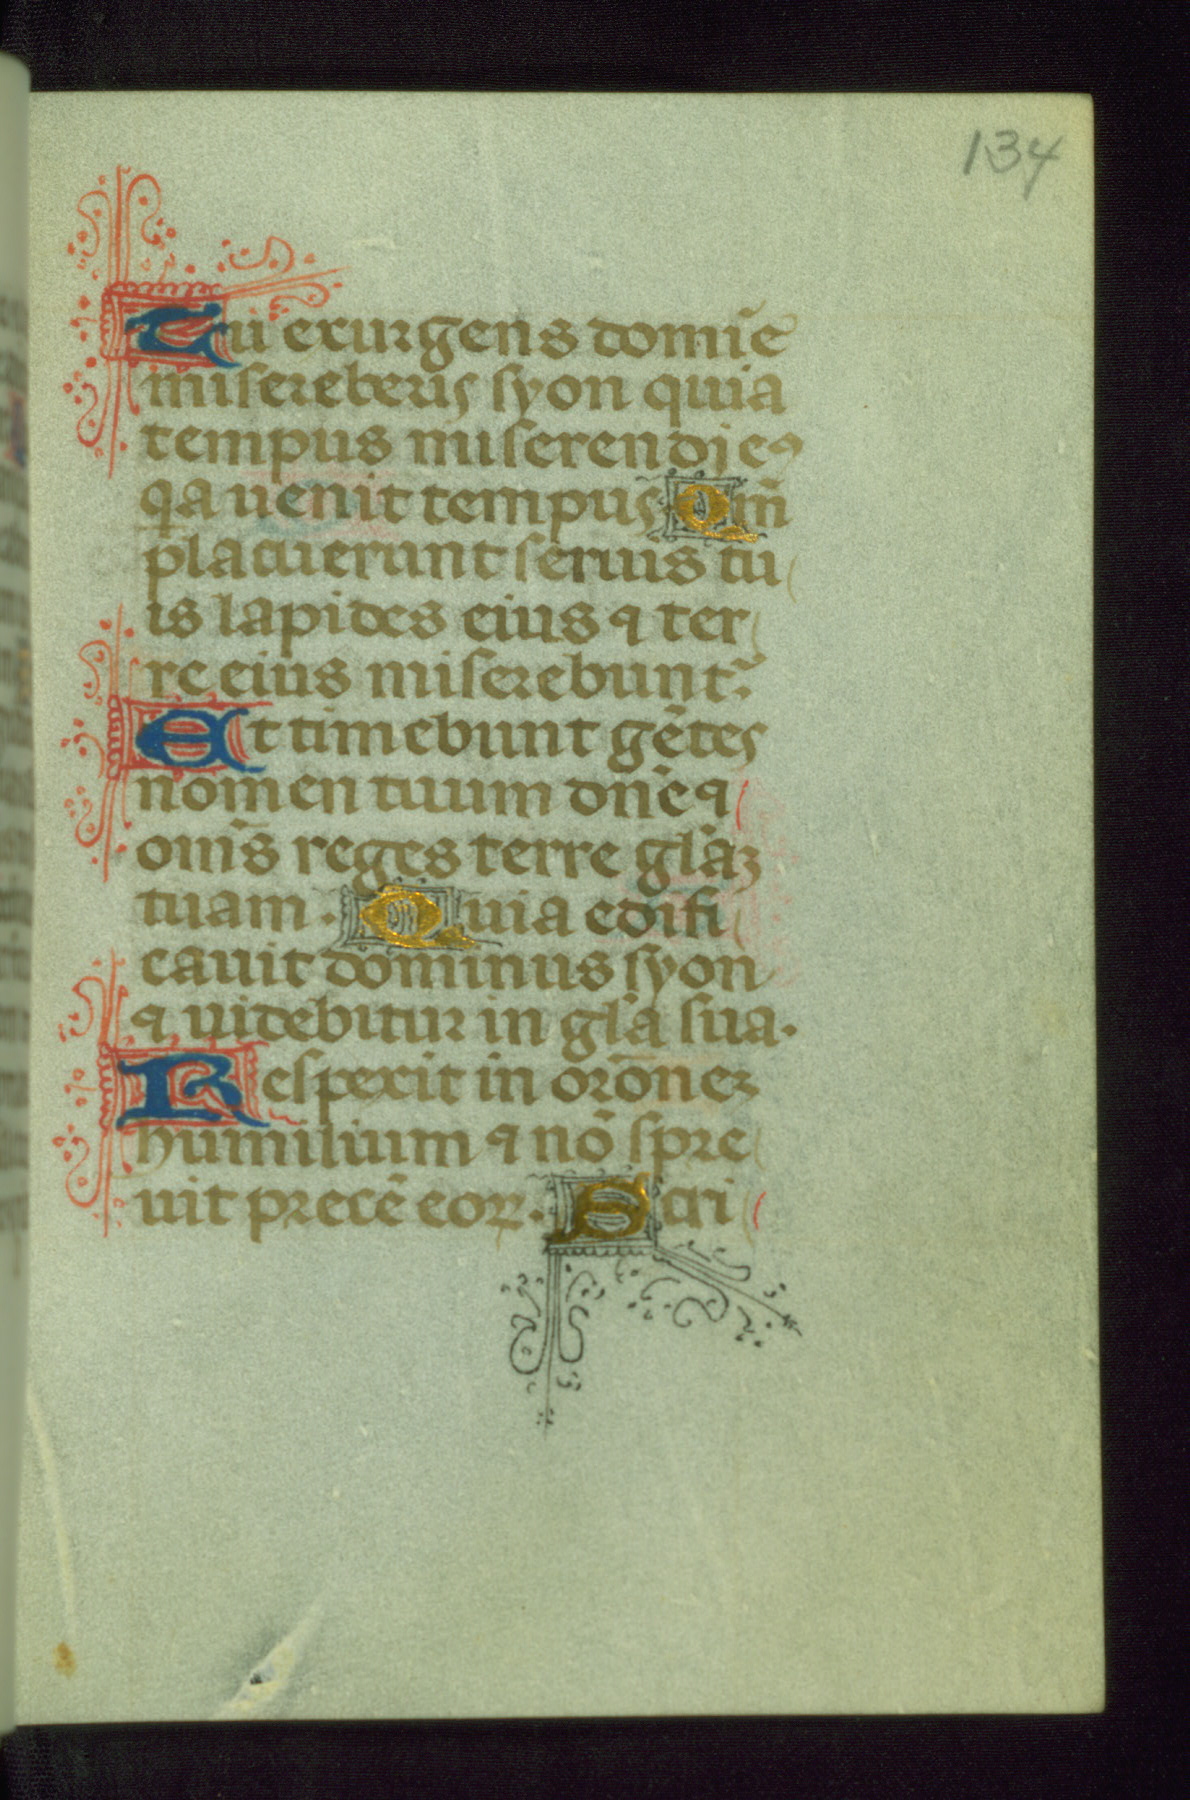 134
Tu exurgens domīe
misereberis syon quia
tempus miserendi eꝰ
qa uenit tempus Qm̄
placuerunt seruis tu
is lapides eius ⁊ ter
re eius miserebunt᷑.
Et timebunt gētes
nomen tuum dn̄e ⁊
om̄s reges terre gl̄aꝫ
tuam. Quia edifi
cauit dominus syon
⁊ uidebitur in gl̄a sua.
Respexit in orōneꝫ
humilium ⁊ nō spre
uit precē eoꝝ. Scri